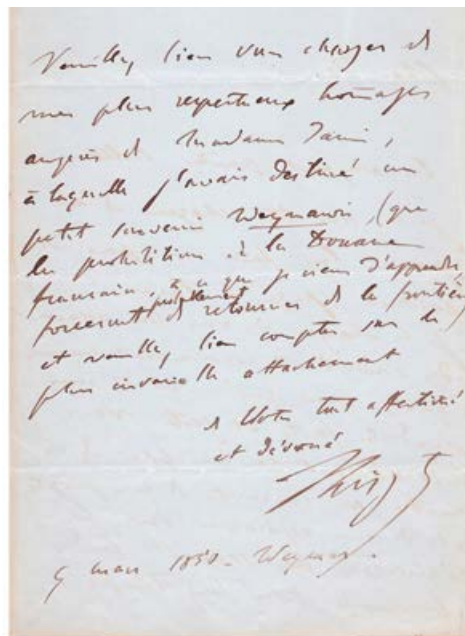 Veuillez bien vous charger de
mes plus respectueux hommages
auprès de Madame Janin,
à laquelle j'avais destiné un
petit souvenir Weymarois (que
les prohibitions de la Douane
française, à ce que je viens d'apprendre,
forceront de retourner de la frontière)
probablement
et veuillez bien compter sur le
plus invariable attachement
de Votre tout affectionné
et dévoué
F Liszt
9 mars 1850 - Weymar.